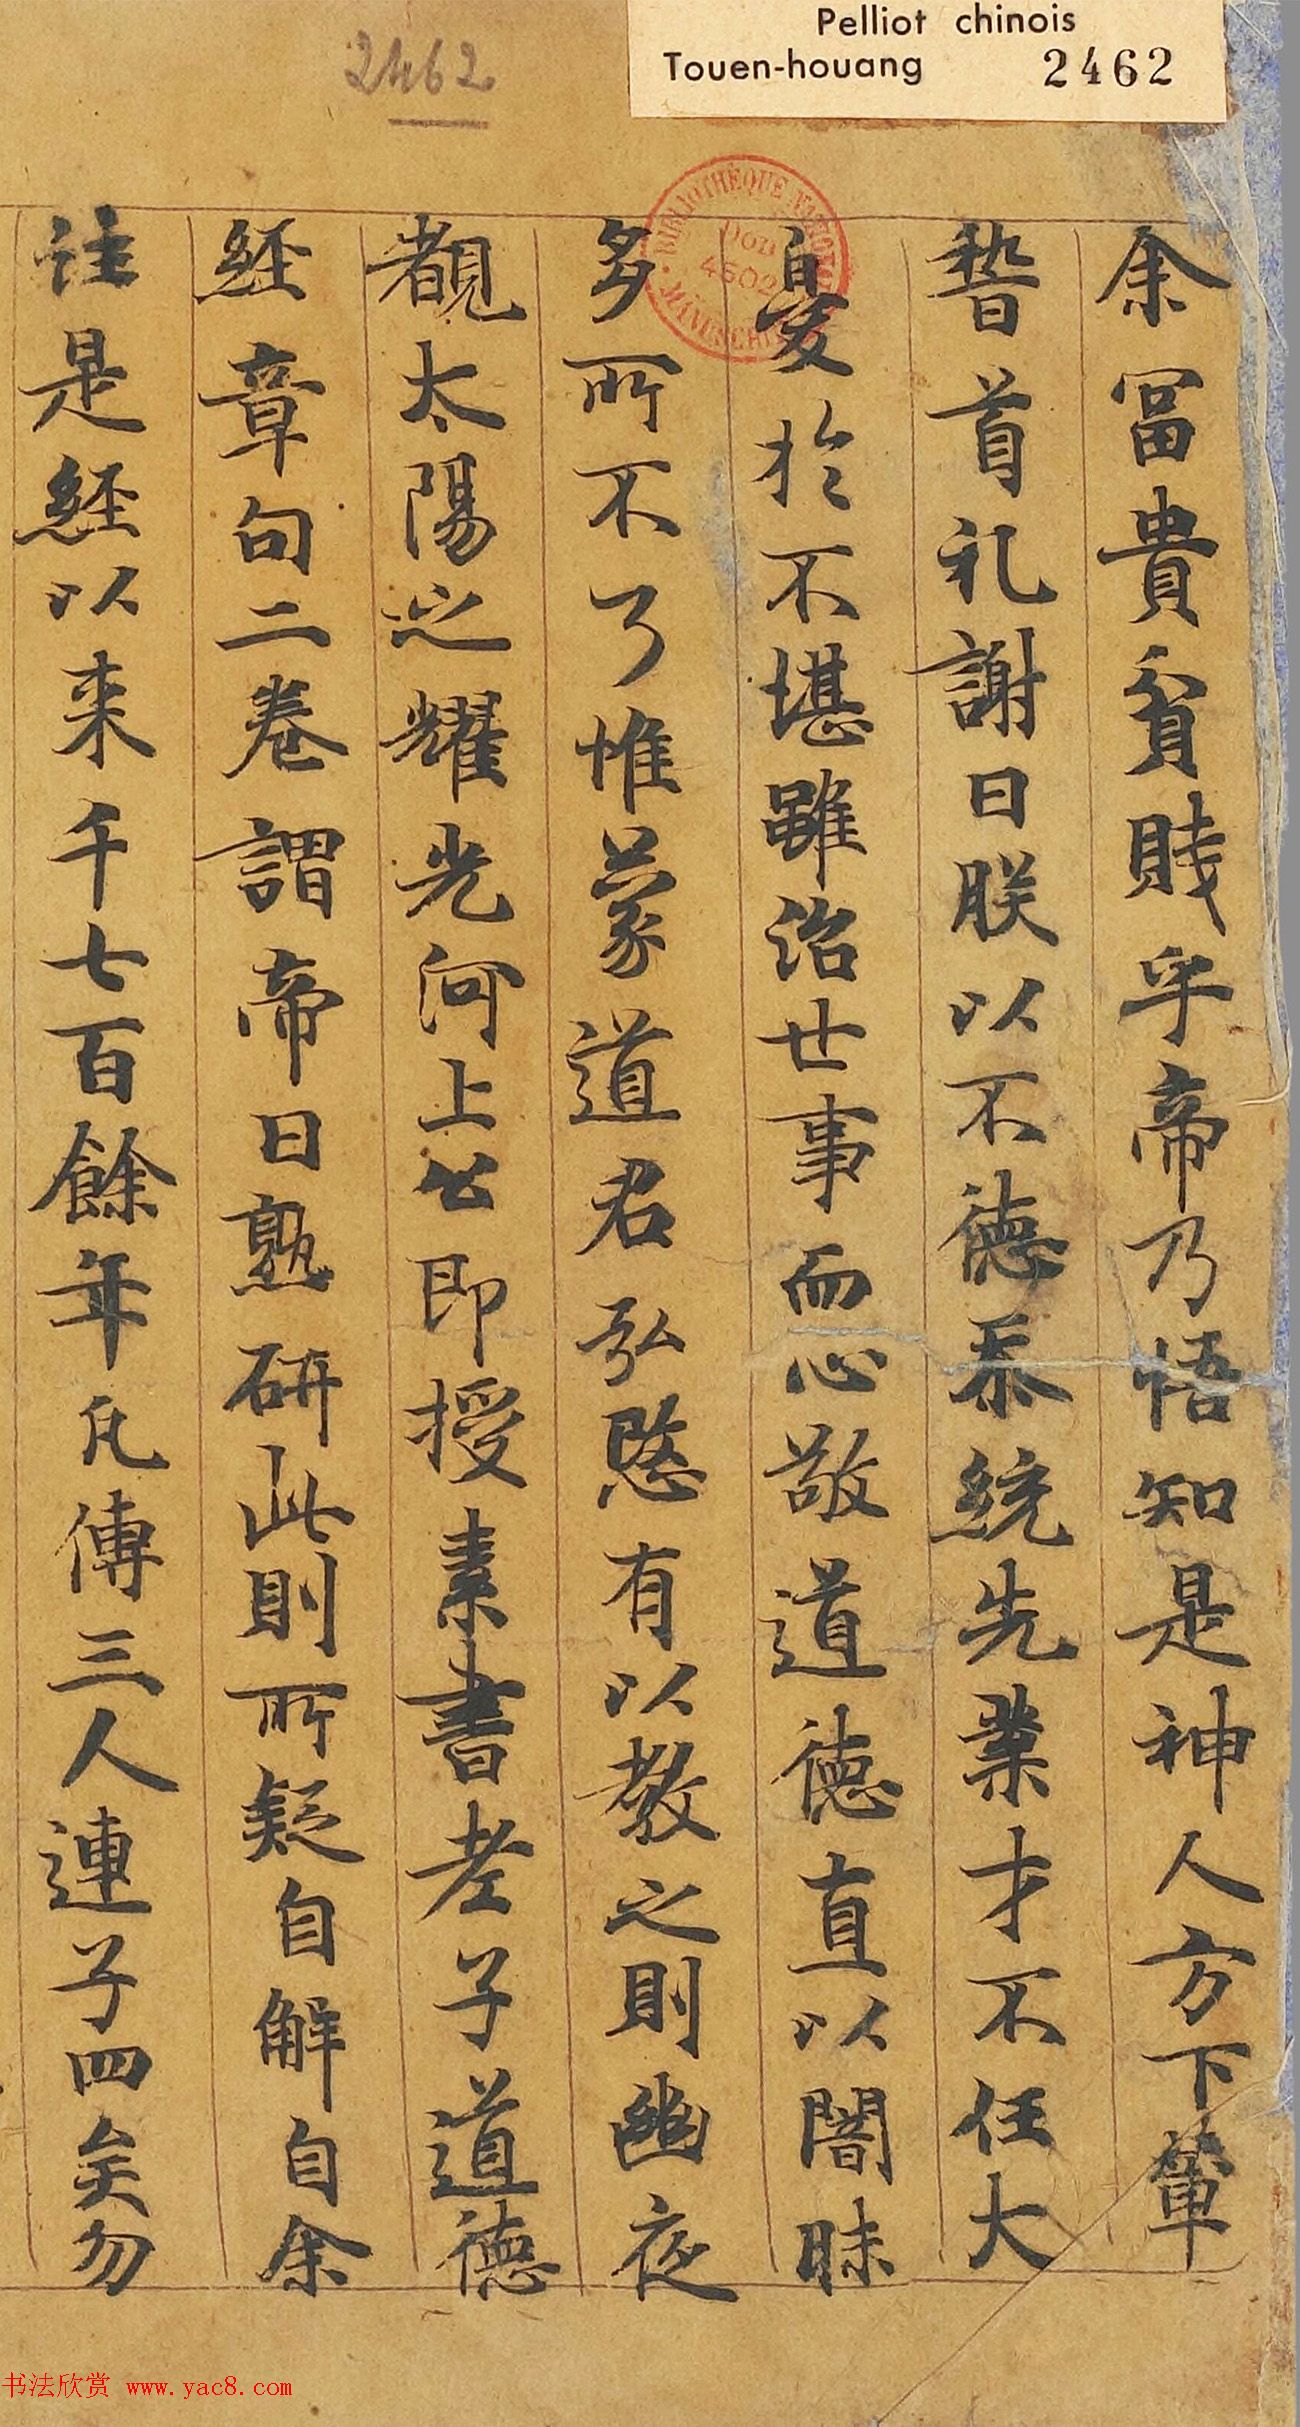 Pelliot chinois
Touen-houang 2462
2462
BIBLIOTHÈQUE NATIONALE
DOD
4502
余冨貴貧賎乎帝乃悟知是神人方下輦
稽首礼謝曰朕以不德忝統先業才不任大
憂於不堪雖治世事而心敬道德直以闇昧
多所不了惟蒙道君弘愍有以教之則幽夜
覩太陽之耀光河上公即授素書老子道德
經章句二卷謂帝曰熟研此則所疑自解自余
註是經以来千七百餘年凡傳三人連子四矣勿
书法欣赏 www.yac8.com